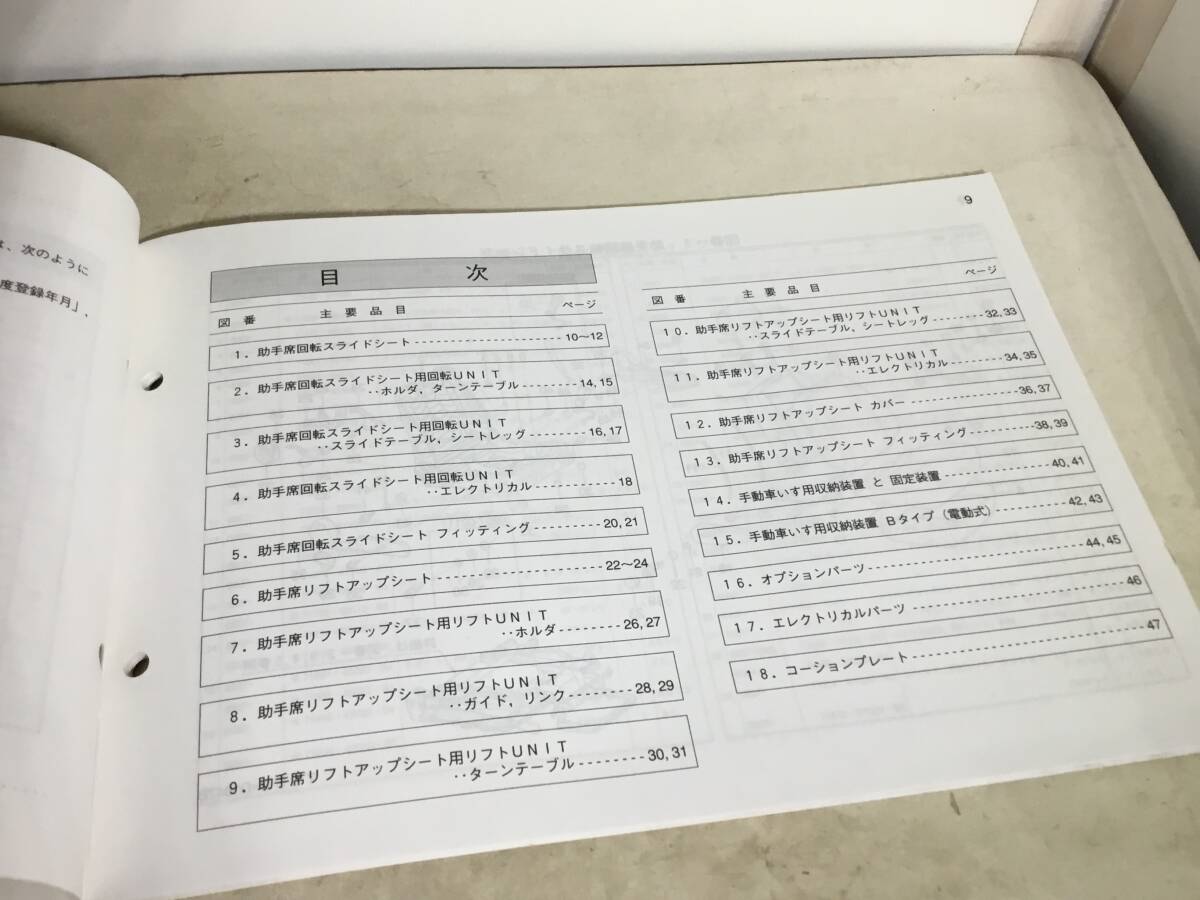 は、次のように
度登録年月」、
9
目 次
図 番 主 要 品 目 ページ
1. 助手席回転スライドシート 10〜12
2. 助手席回転スライドシート用回転UNIT
‥ホルダ,ターンテーブル 14,15
3. 助手席回転スライドシート用回転UNIT
‥スライドテーブル,シートレッグ 16,17
4. 助手席回転スライドシート用回転UNIT
‥エレクトリカル 18
5. 助手席回転スライドシート フィッティング 20,21
6. 助手席リフトアップシート 22〜24
7. 助手席リフトアップシート用リフトUNIT
‥ホルダ 26,27
8. 助手席リフトアップシート用リフトUNIT
‥ガイド,リンク 28,29
9. 助手席リフトアップシート用リフトUNIT
‥ターンテーブル 30,31
図 番 主 要 品 目 ページ
10. 助手席リフトアップシート用リフトUNIT
‥スライドテーブル,シートレッグ 32,33
11. 助手席リフトアップシート用リフトUNIT
‥エレクトリカル 34,35
12. 助手席リフトアップシート カバー 36,37
13. 助手席リフトアップシート フィッティング 38,39
14. 手動車いす用収納装置 と 固定装置 40,41
15. 手動車いす用収納装置 Bタイプ(電動式) 42,43
16. オプションパーツ 44,45
17. エレクトリカルパーツ 46
18. コーションプレート 47